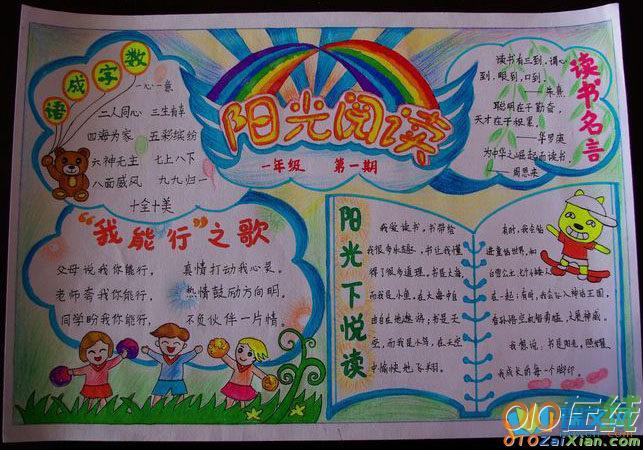 数字成语
一心一意
二人同心 三生有幸
四海为家 五彩缤纷
六神无主 七上八下
八面威风 九九归一
十全十美
阳光阅读
一年级 第一期
读书名言
读书有三到，谓心
到，眼到，口到。
——朱熹
聪明在于勤奋，
天才在于积累。
——华罗庚
为中华之崛起而读书。
——周恩来
“我能行”之歌
父母说我你能行， 真情打动我心灵。
老师夸我你能行， 热情鼓励方向明。
同学盼我你能行， 不负伙伴一片情。
阳光下悦读
我爱读书，书带给
我很多乐趣，书让我懂
得了很多道理。书是大海
而我是小鱼，在大海中自
由自在地遨游；书是天
空，而我是小鸟，在天空
中愉快地飞翔。
有时，我会钻
进童话世界，和
白雪公主
在一起；有时，我会 入神话王国，
与孙悟空 大展神威。
我想说，书是阳光，照耀
我成长的每一个脚印。
010在线
010ZaiXian.com